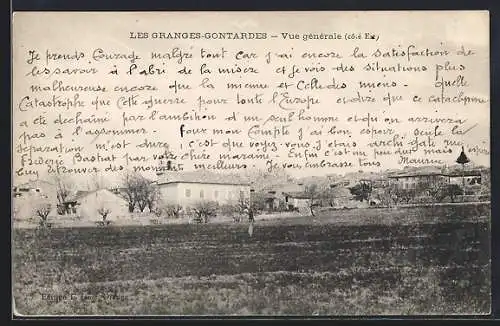 LES GRANGES-GONTARDES – Vue générale (côté Est)
Je prends Courage malgré tout car j'ai encore la satisfaction de
les savoir à l'abri de la misère et je vois des situations plus
malheureuse encore que la mienne et Celle des miens - quelle
Catastrophe que Cette guerre pour toute l'Europe et dire que ce cataclysme
a été déchainé par l'ambition d'un seul homme et qu'on arrivera
pas à l'assommer. Pour mon Compte j'ai bon espoir, seule la
séparation m'est dure, c'est que voyez-vous j'étais
Bastiat par votre chère maraine. Enfin c'est un peu mais
des moments meilleurs. Je vous embrasse tous Maurice